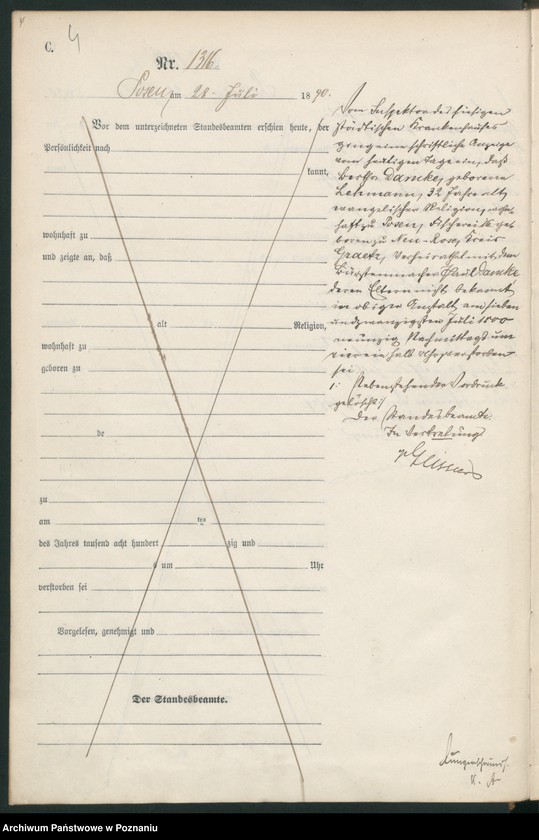 C.
Nr. 1316.
Posen, am 28. Juli 1890.
Vor dem unterzeichneten Standesbeamten erschien heute, der
Persönlichkeit nach
kannt,
wohnhaft zu
und zeigte an, daß
alt Religion,
wohnhaft zu
geboren zu
de
zu
am ten
des Jahres tausend acht hundert zig und
um Uhr
verstorben sei
Vorgelesen, genehmigt und
Der Standesbeamte.
Vom Inspektor des hiesigen
städtischen Krankenhauses
ging eine schriftliche Anzeige
vom heutigen Tage ein, daß
Bertha Dancke, geborene
Lehmann, 32 Jahre alt,
evangelischer Religion, wohn-
haft zu Posen, Fischerei ge-
boren zu Neu-Rose, Kreis
Graetz, verheirathet mit dem
Bürstenmacher Paul Dancke
deren Eltern nicht bekannt,
in obiger Anstalt am sieben
und zwanzigsten Juli 1800
neunzig Nachmittags um
vier ein halb Uhr verstorben
sei
Nebenstehender Vordruck
gelöscht
Der Standesbeamte.
In Vertretung
Archiwum Państwowe w Poznaniu